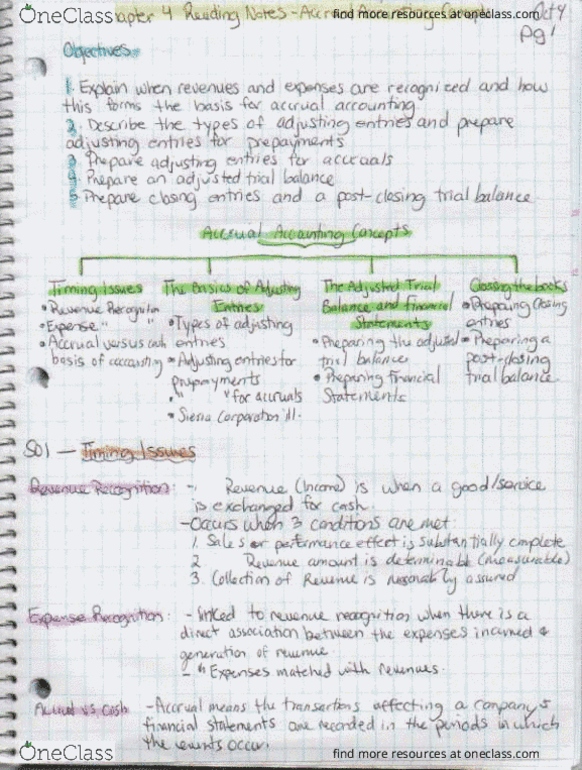 OneClass
Chapter 4 Reading Notes - Accrual Accounting Concepts Oct 4
find more resources at oneclass.com
Pg 1
Objectives
1. Explain when revenues and expenses are recognized and how
this forms the basis for accrual accounting
2. Describe the types of adjusting entries and prepare
adjusting entries for prepayments
3. Prepare adjusting entries for accruals
4. Prepare an adjusted trial balance
5. Prepare closing entries and a post-closing trial balance
Accrual Accounting Concepts
Timing Issues
• Revenue Recognition
• Expense " "
• Accrual versus cash
basis of accounting
The Basics of Adjusting
Entries
• Types of adjusting
entries
• Adjusting entries for
prepayments
• " " for accruals
• Sierra Corporation ill.
The Adjusted Trial
Balance and Financial
Statements
• Preparing the adjusted
trial balance
• Preparing financial
Statements
Closing the books
• Preparing closing
entries
• Preparing a
post-closing
trial balance
SO1 — Timing Issues
Revenue Recognition: - Revenue (Income) is when a good/service
is exchanged for cash.
- Occurs when 3 conditions are met:
1. Sales or performance effect is substantially complete
2 Revenue amount is determinable (measurable)
3. Collection of Revenue is reasonably assured
Expense Recognition: - linked to revenue recognition when there is a
direct association between the expenses incurred &
generation of revenue
- " Expenses matched with revenues.
Accrual vs Cash - Accrual means the transactions affecting a company's
financial statements are recorded in the periods in which
the events occur.
OneClass
find more resources at oneclass.com